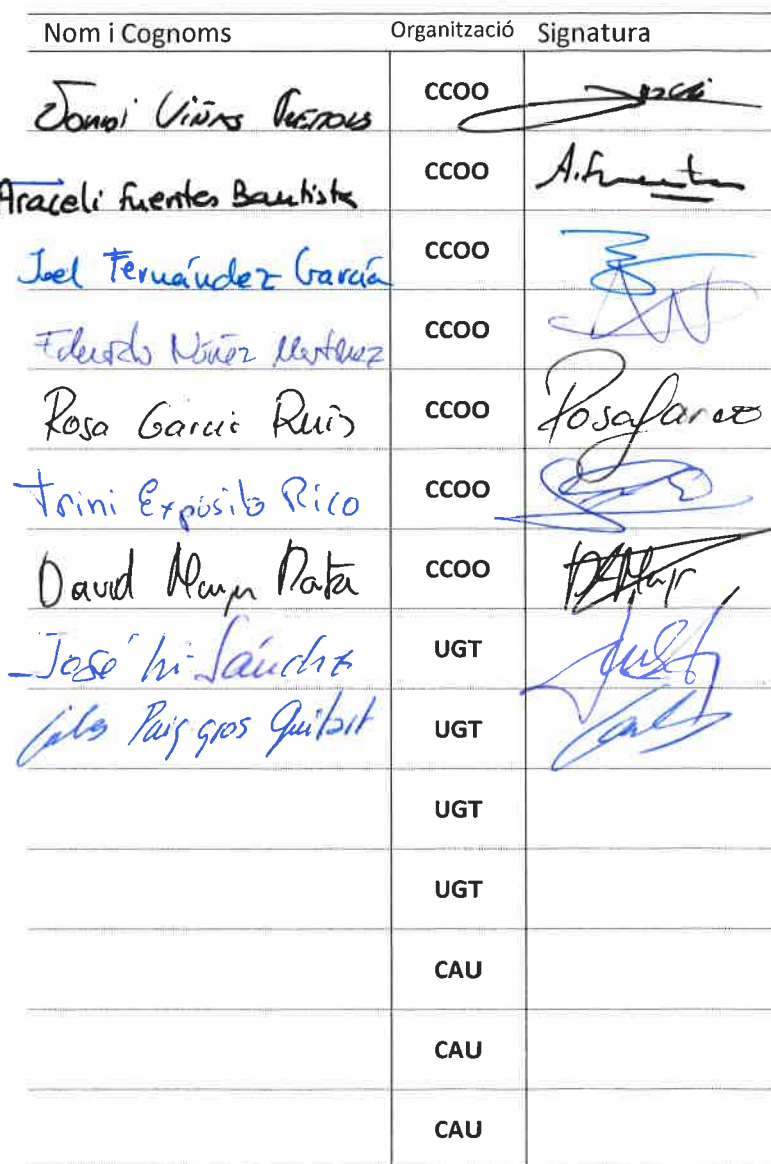 Nom i Cognoms Organització Signatura
Viñas CCOO
Araceli Fuentes Bautista CCOO A.Fuentes
Joel Fernández García CCOO
Eduardo Núñez Martínez CCOO
Rosa Garcia Ruiz CCOO Rosa
Trini Expósito Rico CCOO
David CCOO
José Sánchez UGT
Puig gros Guitart UGT
UGT
UGT
CAU
CAU
CAU